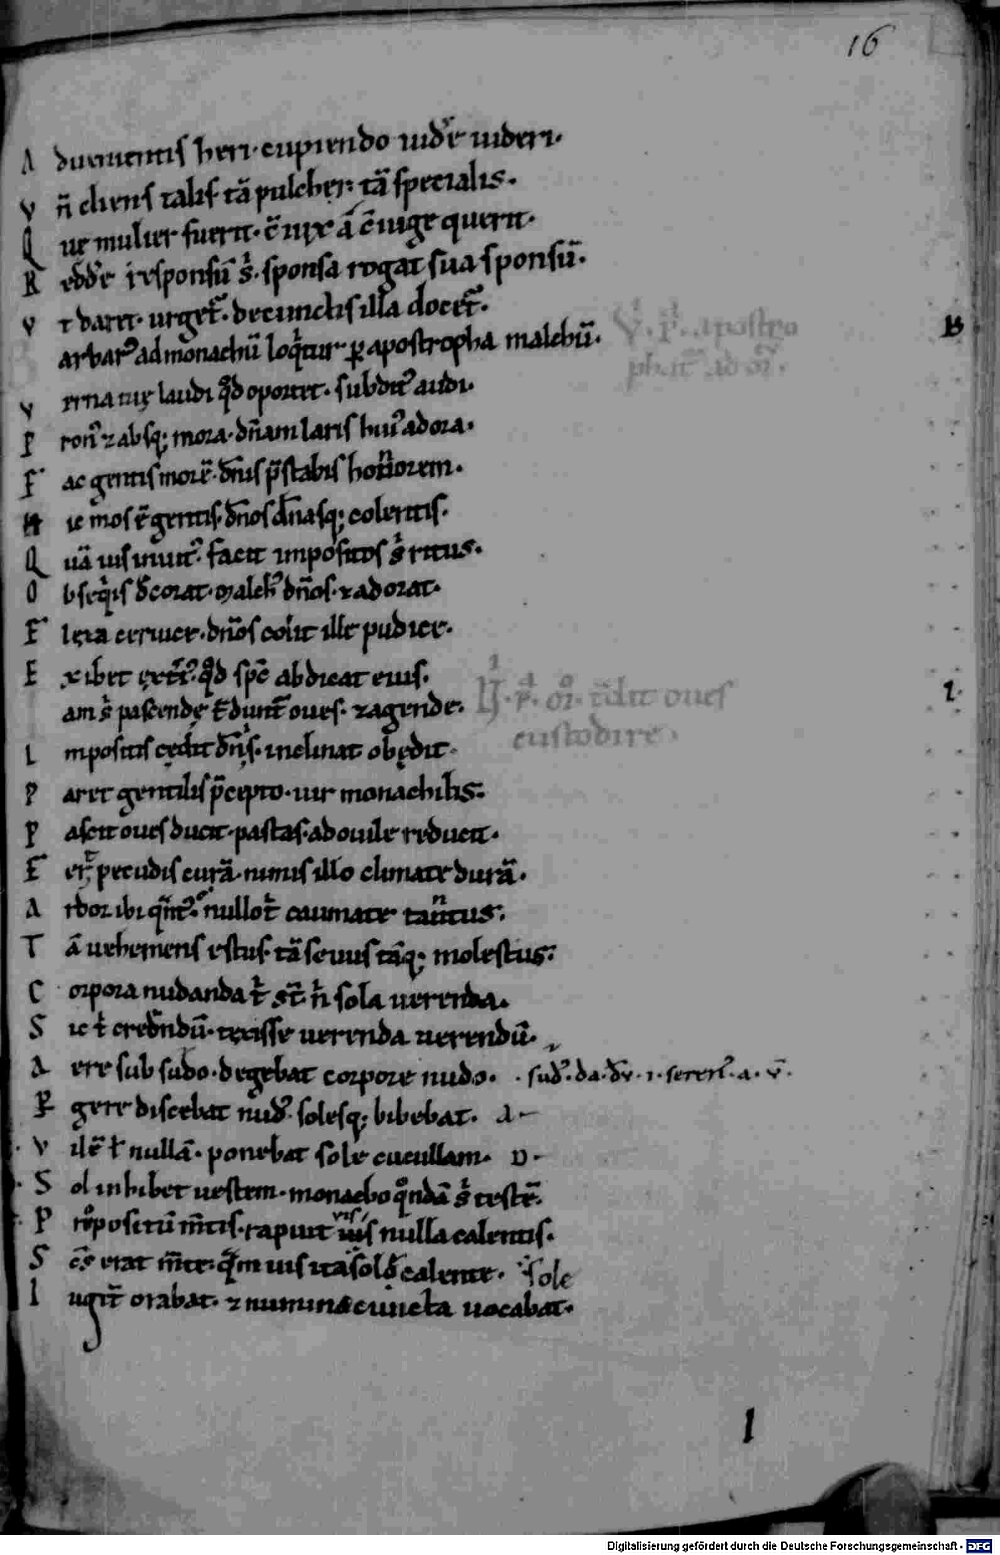 16
A duenientis heri. cupiendo uidēr uideri.
V ñ cliens talis tā pulcher: tā specialis.
Q ue mulier fuerit. ē uix ā ē iuge querit.
R eddēr responsū s. sponsa rogat sua sponsū.
V t daret. urget. de cunctis illa docet.
B arbar' ad monachū loq̇tur p apostropha malchū.
V. P. apostropha
V erna mȩ laudi qd oportet. subdit' audi.
P ron' ⁊ absq; mora. dn̄am laris hui' adora.
F ac gentis morē. dn̄is p̄stabis honorem.
H ic mos ē gentis. dn̄os dn̄asq; colentis.
Q uā uis inuit'. facit impositos s ritus.
O bseq̇is decorat. malch' dn̄os. ⁊ adorat.
F lexa ceruice. dn̄os colit ille pudice.
E xibet exter'. qd spē abdicat eius.
I am s pascende tdunt oues. ⁊ agende.
tdit oues
custodire.
I mpositis cedit dn̄s. inclinat obȩdit.
P aret gentilis p̄cepto. uir monachilis.
P ascit oues ducit. pastas. ab ouile reducit.
F ert pecudis curā. nimis illo climate durā.
A rdor ibi q̄nt'. nullo t caumate tantus.
T ā uehemens estus. tā seuus tāq; molestus.
C orpora nudanda t st. ñ sola uerenda.
S ic t credendū. texisse uerenda uerendū.
A ere sub sudo. degebat corpore nudo. . sud'. da. dv. i. seren'. a. v.
F rigere discebat nud'. solesq; bibebat. a.
V ilē t nullā. ponebat sole cucullam. v.
S ol inhibet uestem. monacho qndā s testē.
P ropositū m̄tis. rapuit uis nulla calentis.
S c̄s erat m̄te. q̄m uis ita solo calente. sole
I ugit orabat. ⁊ numina cuncta uocabat.
I
Digitalisierung gefördert durch die Deutsche Forschungsgemeinschaft - DFG